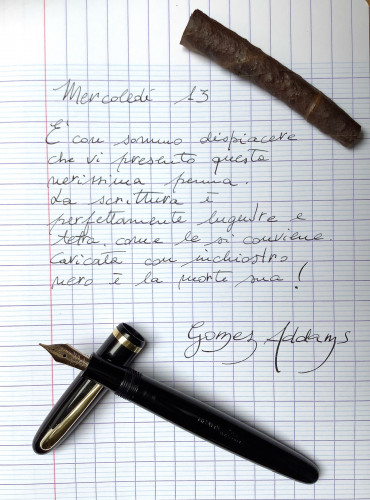 Mercoledì 13
E' con sommo dispiacere
che vi presento questa
nerissima penna.
La scrittura è
perfettamente lugubre e
tetra, come le si conviene.
Caricata con inchiostro
nero è la morte sua!
Gomez Addams